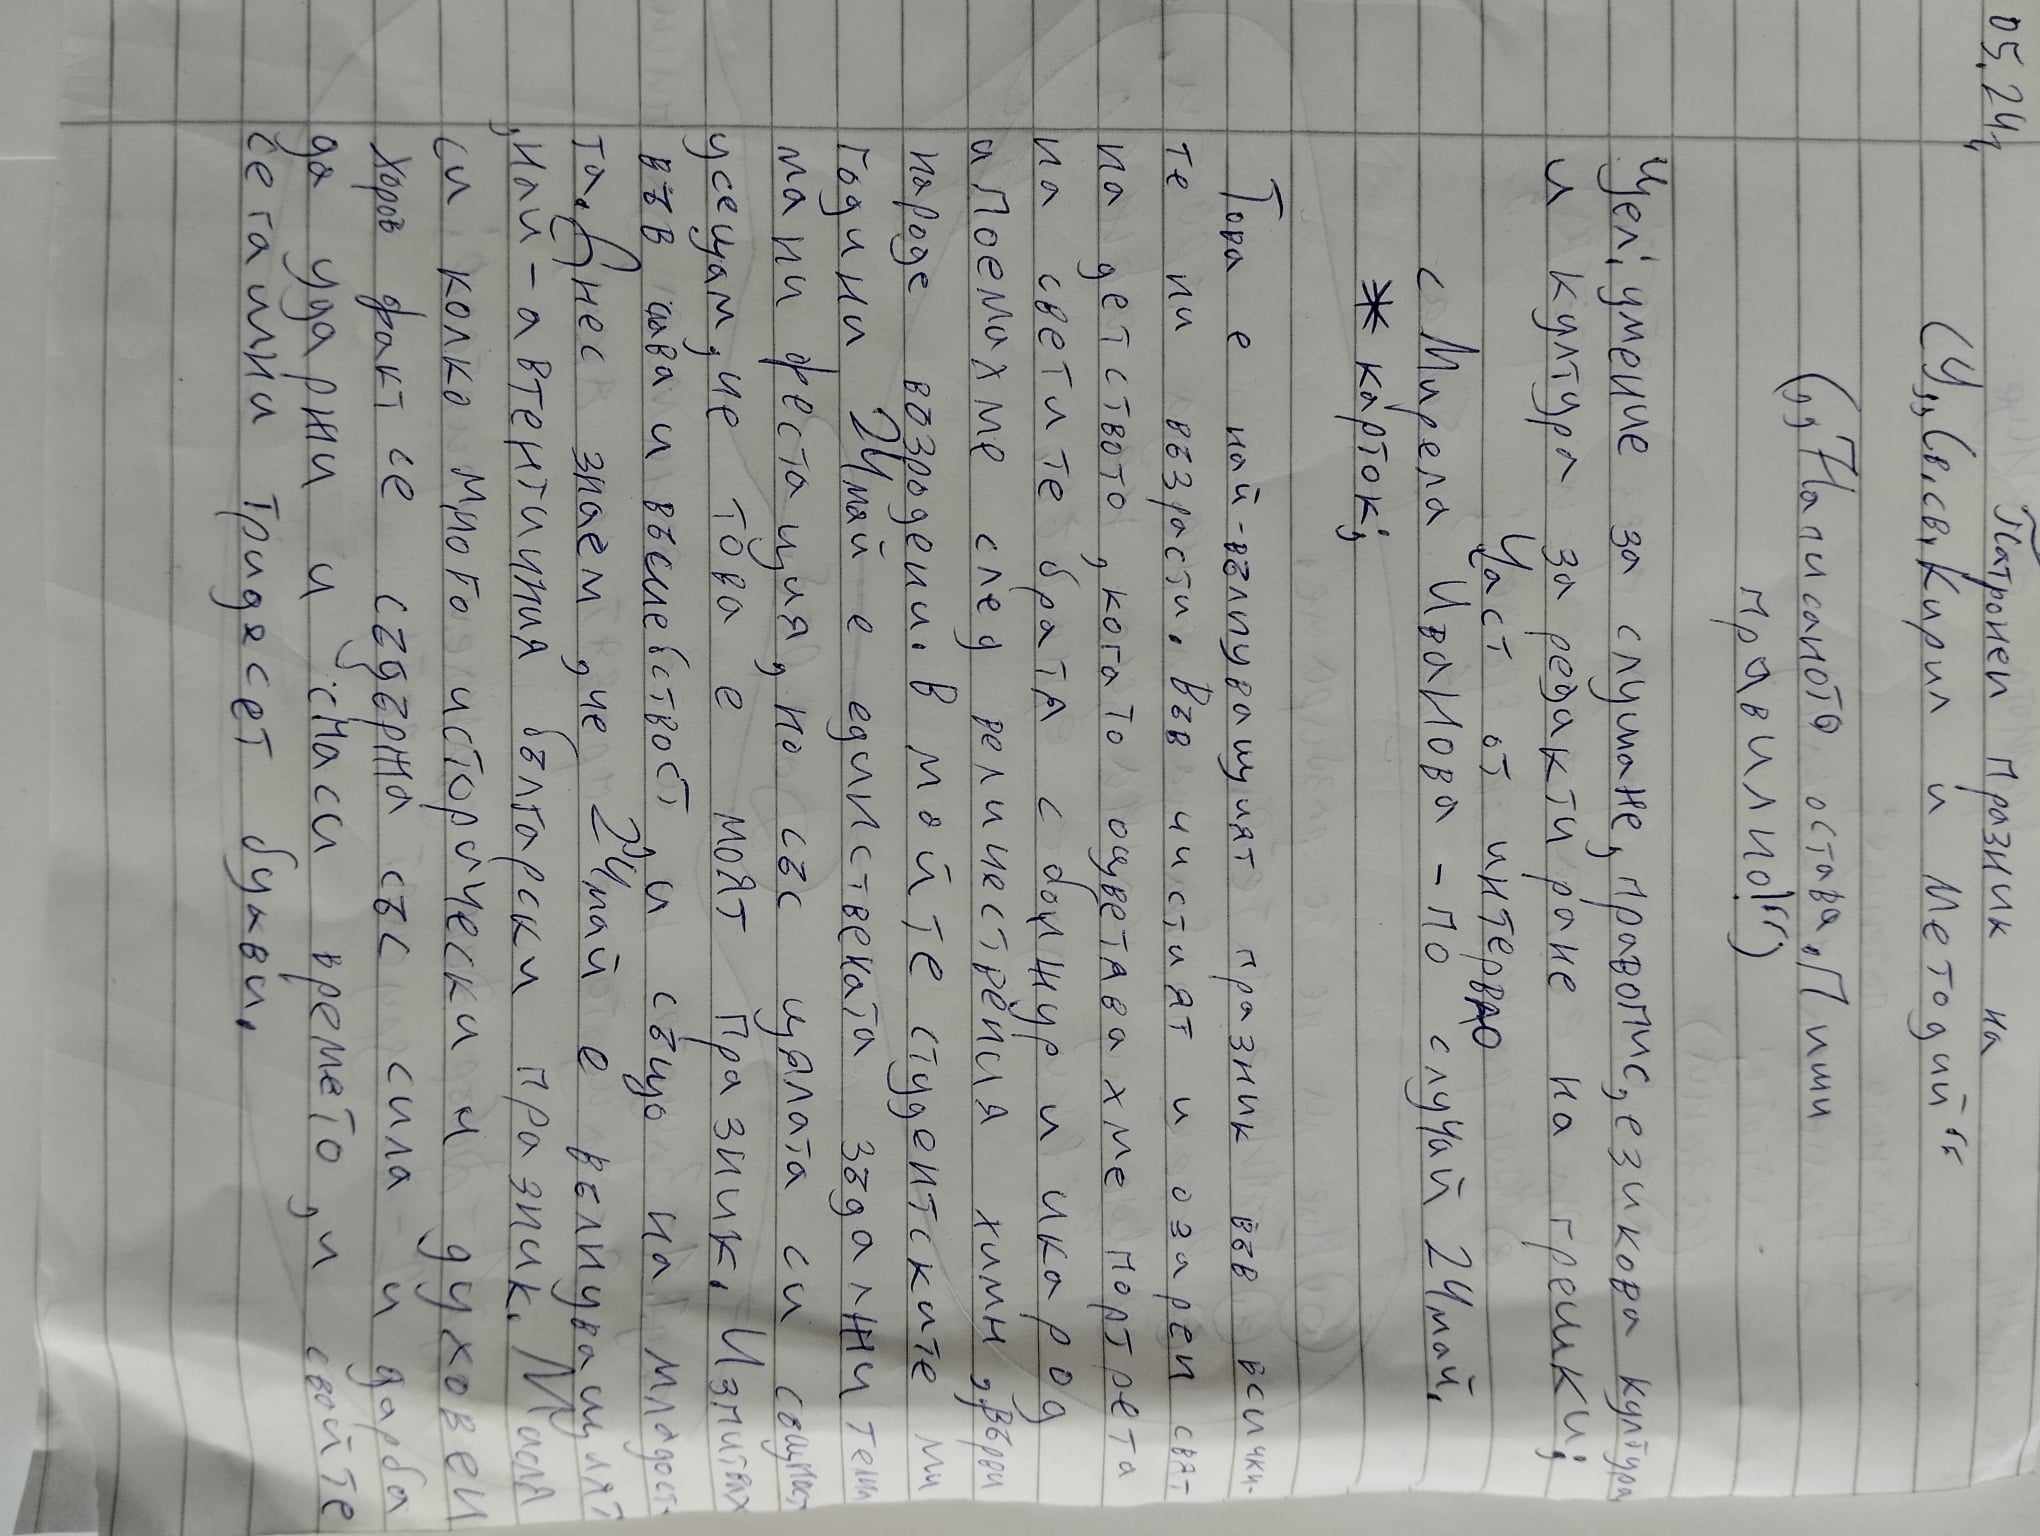 05.24г
Патронен празник на
(У„Св.св.Кирил и Методий“
(„Написаното остава.Пиши
правилно!“)
Цел: умение за слушане, правопис, езикова култура
и култура за редактиране на грешки;
Част от интервю
с Мирела Иванова - по случай 24май.
* карток;
Това е най-вълнуващият празник във всички-
те ни възрасти. Във чистият и озарен свят
на детството ,когато оцветавахме портрета
на светите братя с божур и икаород
иПоемахме след величествения химн „Върви
народе възродени. В мойте студентските ми
години 24май е единствената задължителни
манифестация, но със цялата си същност
усещам, че това е моят празник. Измитвах
във това и вълшебствост и също на младост-
та. Днес знаем ,че 24май е вълнуващият
,най-автентичния български празник. Мисля
си колко много исторически и духовен
хоров факт се съдържа със сила и дарба
да удържи и смаси времето ,и свойте
сеташни тридесет букви.